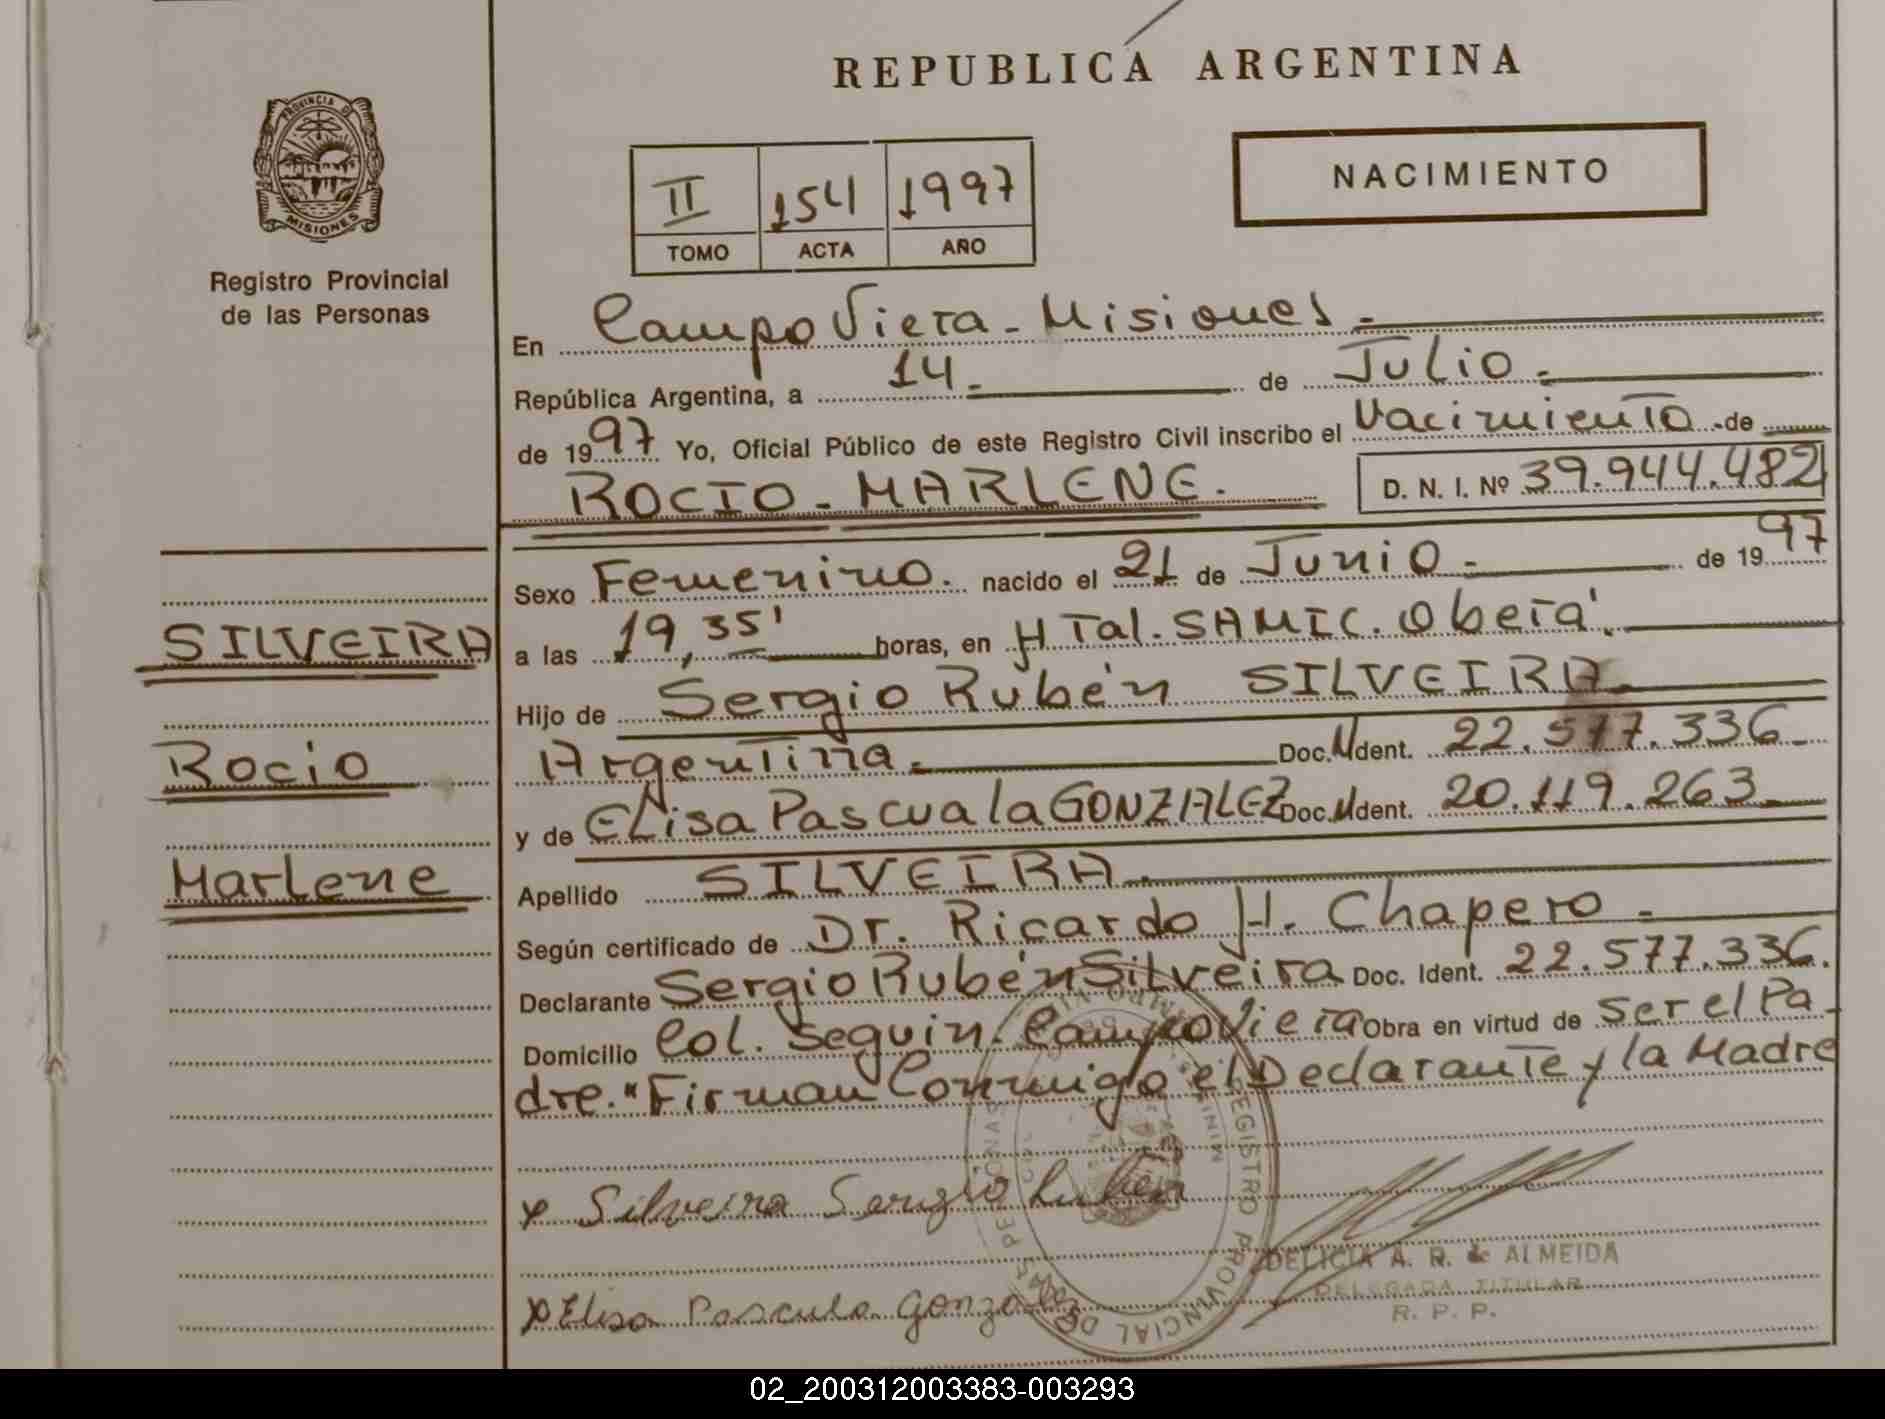 REPUBLICA ARGENTINA
PROVINCIA DE
MISIONES
Registro Provincial
de las Personas
II 154 1997
TOMO ACTA AÑO
NACIMIENTO
En Campo Viera - Misiones.-
República Argentina, a 14.- de Julio.-
de 1997 Yo, Oficial Público de este Registro Civil inscribo el Nacimiento.-de
ROCIO - MARLENE.
D. N. I. Nº 39.944.482
Sexo Femenino. nacido el 21 de Junio.- de 1997
SILVEIRA
a las 19,35' horas, en H Tal. SAMIC. Oberá.
Hijo de Sergio Rubén SILVEIRA
Rocio
Argentina. Doc. Ident. 22.577.336
y de Elisa Pascuala GONZALEZ Doc. Ident. 20.119.263
Marlene
Apellido SILVEIRA.
Según certificado de Dr. Ricardo H. Chapero.-
Declarante Sergio Rubén Silveira Doc. Ident. 22.577.336.
Domicilio Col. Seguin. Campo Viera Obra en virtud de ser el Pa-
dre." Firman Conmigo el Declarante y la Madre
x Silveira Sergio Rubén
DELICIA A. R. de ALMEIDA
DELEGADA TITULAR
R. P. P.
x Elisa Pascula Gonzalez
REGISTRO PROVINCIAL DE LAS PERSONAS
02_200312003383-003293